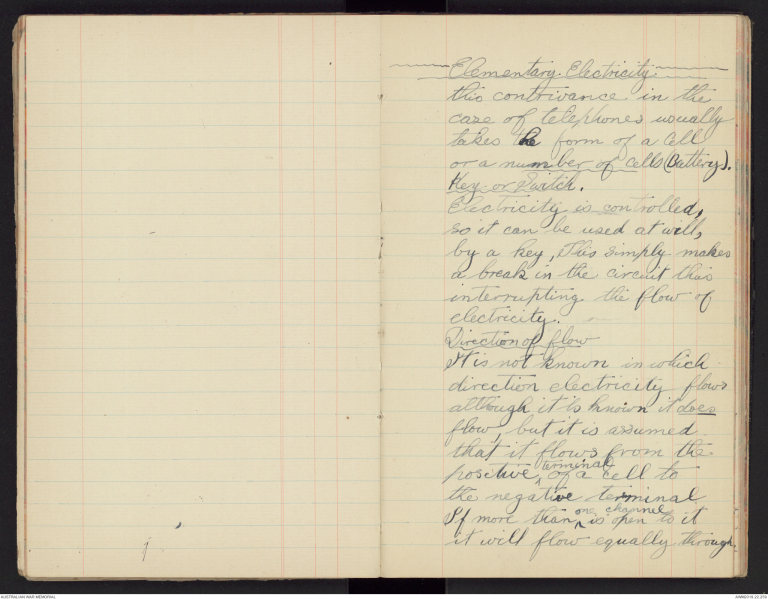 Elementary Electricity
this contrivance in the
case of telephones usually
takes the form of a cell
or a number of cells (Battery).
Key or Switch.
Electricity is controlled,
so it can be used at will,
by a key, This simply makes
a break in the circuit this
interrupting the flow of
electricity.
Direction of flow
It is not known in which
direction electricity flows
although it is known it does
flow, but it is assumed
that it flows from the
positive terminal of a cell to
the negative terminal
If more than one channel is open to it
it will flow equally through
AUSTRALIAN WAR MEMORIAL